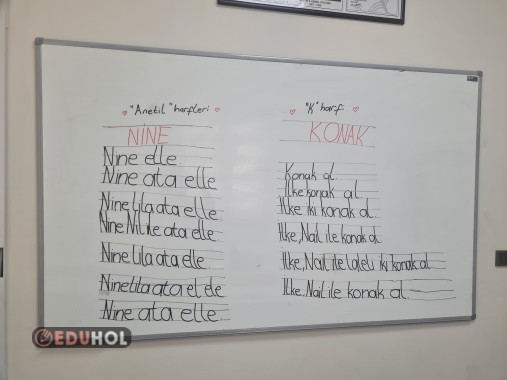 "Anetil" harfleri
NİNE
Nine elle
Nine ata elle
Nine Lila ata elle
Nine Nil ile ata elle
Nine Lila ata elle
Nine Lila ata el de
Nine ata elle.
"K" harfi
KONAK
Konak al.
İlke konak al.
İlke iki konak al.
İlke, Nail ile konak al.
İlke, Nail ile laleli iki konak al.
İlke. Nail ile konak al.
EDUHOL